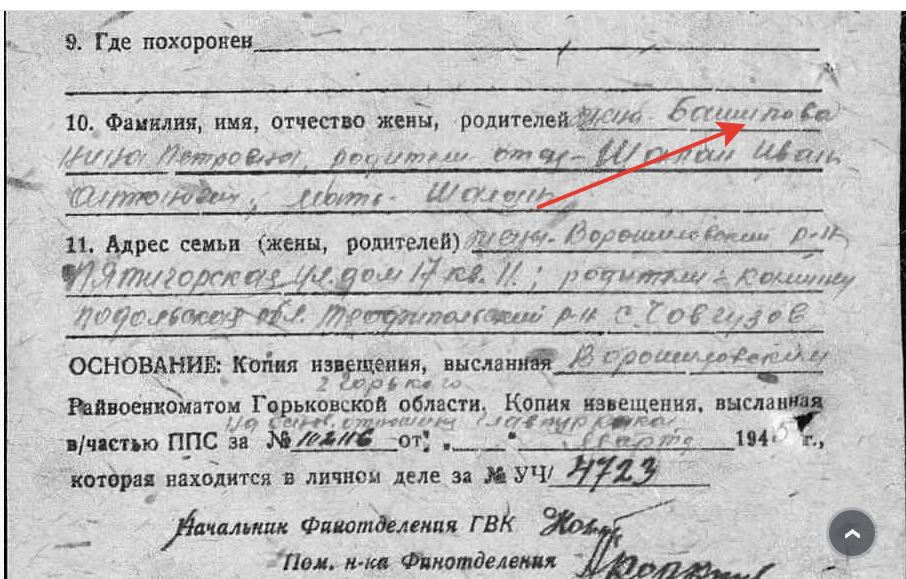 9. Где похоронен
10. Фамилия, имя, отчество жены, родителей жена - Башилова
Нина Петровна, родители отец - Шапан Иван
Антонович, мать -
11. Адрес семьи (жены, родителей) жены - Ворошиловский р-н
Пятигорская ул. дом 17 кв. 11.; родители - камииец
подольская обл. Теофипольский р-н с. Човгузов
ОСНОВАНИЕ: Копия извещения, высланная Ворошиловским
г Горького
Райвоенкоматом Горьковской области. Копия извещения, высланная
На основ. отношения
в/частью ППС за № от " " марта 1945 г.,
которая находится в личном деле за № УЧ/ 4723
Начальник Финотделения ГВК
Пом. н-ка Финотделения